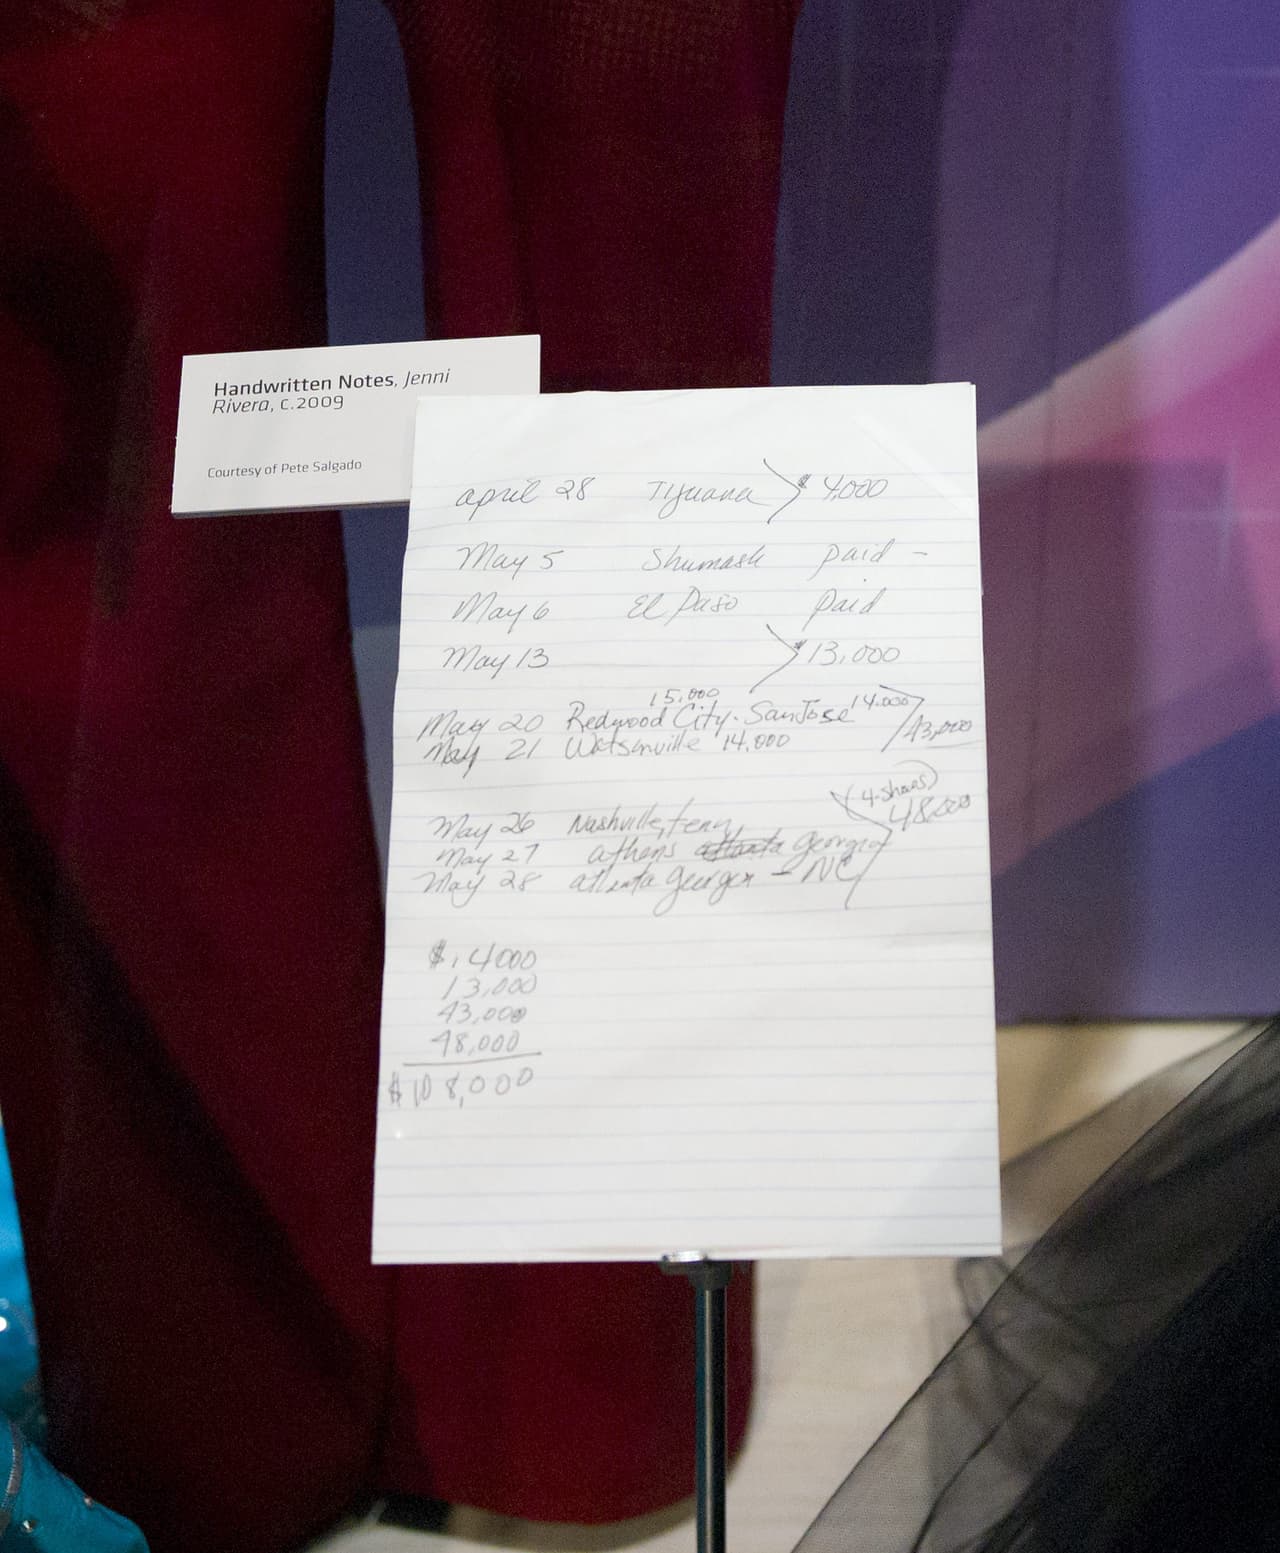 Handwritten Notes, Jenni
Rivera, c.2009
Courtesy of Pete Salgado
April 28 Tijuana $ 4,000
May 5 Shumash paid -
May 6 El Paso paid
May 13 $ 13,000
15,000
May 20 Redwood City - San Jose 14,000
May 21 Watsonville 14,000
43,000
(4-shows)
48,000
May 26 Nashville, tenn,
May 27 athens atlanta georgia
May 28 atlanta georgia - NC
$ 4000
13,000
43,000
48,000
$108,000